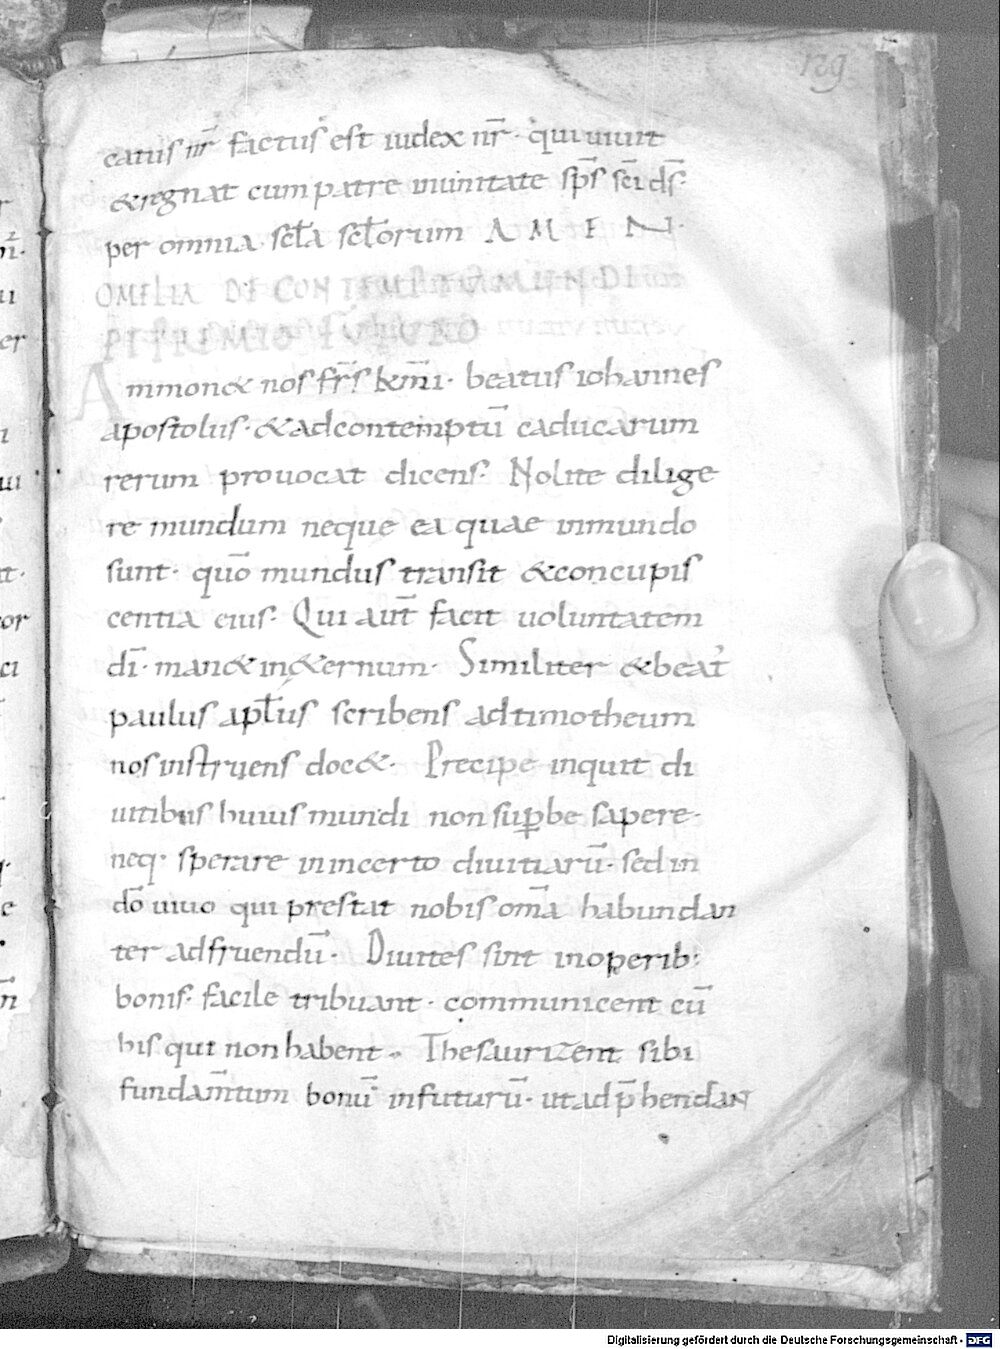 129
catus nr̄ factus est iudex nr̄· qui uiuit
&regnat cum patre inunitate sp̄s sc̄i ds̄·
per omnia scl̄a scl̄orum AMEN·
OMELIA DE CONTEMPTU MUNDI
ET PREMIO FUTURO
Ammon& nos fr̄s km̄i· beatus iohannes
apostolus· &adcontemptū caducarum
rerum prouocat dicens· Nolite dilige
re mundum neque ea quae inmundo
sunt· quō mundus transit &concupis
centia eius· Qui aut̄ facit uoluntatem
dī· man& in&ernum· Similiter &beat᾽
paulus apl̄us scribens adtimotheum
nos instruens doc&· Precipe inquit di
uitibus huius mundi non sup̱be sapere·
neq· sperare inincerto diuitiarū· sed in
dō uiuo qui prestat nobis om̄a habundan
ter adfruendū· Diuites sint inoperib:
bonis· facile tribuant· communicent cū
his qui non habent· Thesaurizent sibi
fundam̄tum bonū infuturū· utadp̄hendan
Digitalisierung gefördert durch die Deutsche Forschungsgemeinschaft - DFG